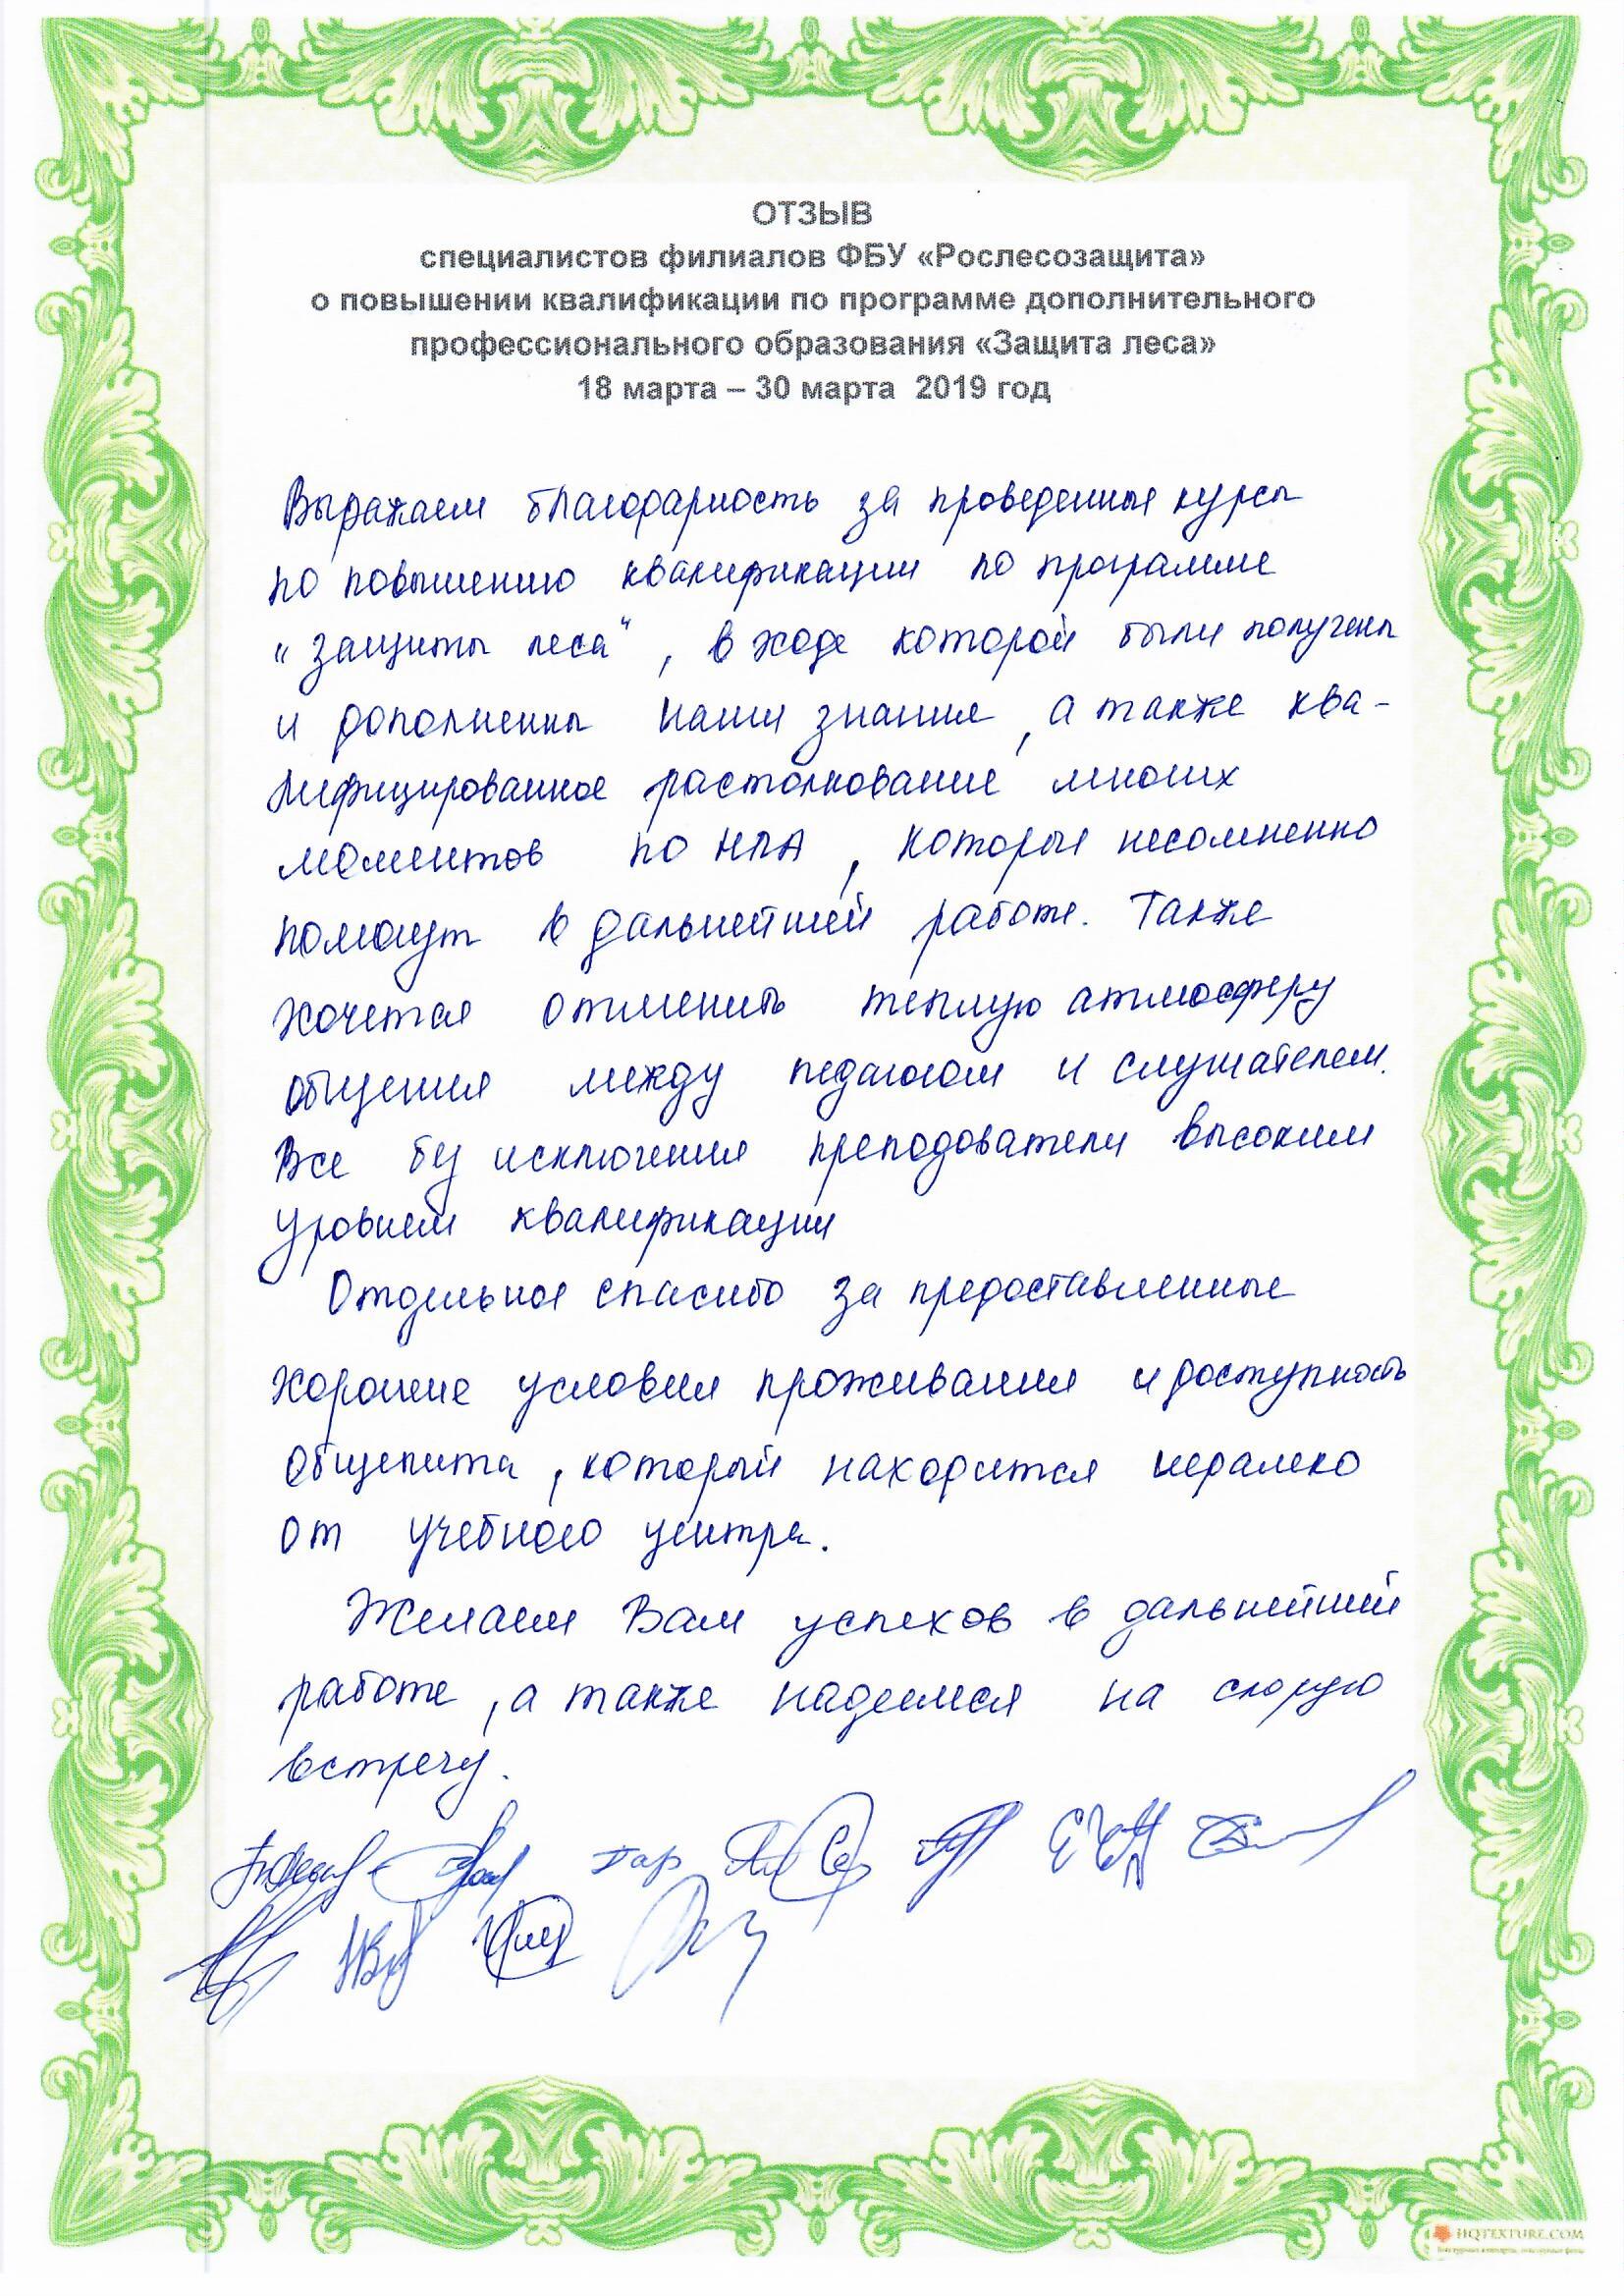 ОТЗЫВ
специалистов филиалов ФБУ «Рослесозащита»
о повышении квалификации по программе дополнительного
профессионального образования «Защита леса»
18 марта – 30 марта 2019 год
Выражаем благодарность за проведенные курсы
по повышению квалификации по программе
"Защиты леса", в ходе которой были получены
и дополнены наши знания, а также ква-
лифицированное растолкование многих
моментов по НПА, которые несомненно
помогут в дальнейшей работе. Также
хочется отменить теплую атмосферу
общения между педагогом и слушателем.
Все без исключения преподователи высоким
уровнем квалификации
Отдельное спасибо за предоставленные
хорошие условия проживания и доступность
общепита, который находится недалеко
от учебного центра.
Желаем Вам успехов в дальнейшей
работе, а также надеемся на скорую
встречу.
HQTEXTURE.COM